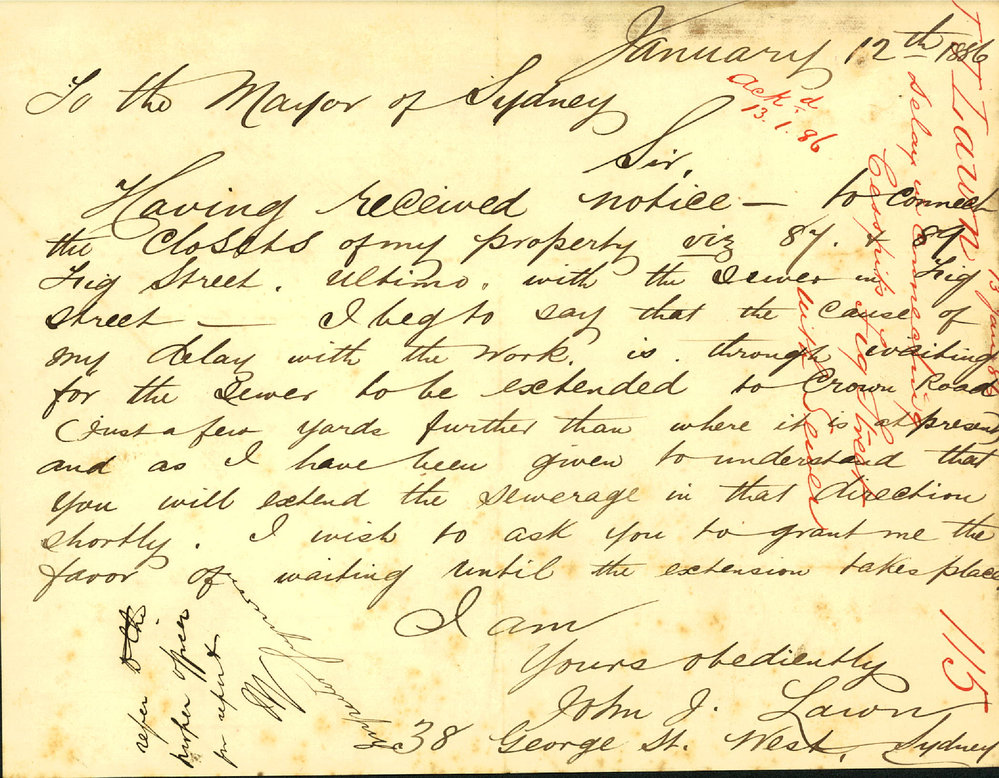 January 12th 1886
To the Mayor of Sydney
Sir,
Having received notice — to connect
the Closets of my property viz 87. & 89
Fig Street. Ultimo. with the Sewer in Fig
street — I beg to say that the Cause of
my delay with the Work. is. through waiting
for the Sewer to be extended to Crown Road
(Just a few yards further than where it is at present
and as I have been given to understand that
you will extend the sewerage in that direction
shortly. I wish to ask you to grant me the
favor of waiting until the extension takes place
I am
Yours obediently
John J. Lawn
38 George St. West, Sydney
Ackd
13.1.86
Lawn
13 Jan 86
delay in Connecting
Cesspits Fig Street
with Sewer
115
refer to the
proper officer
for report